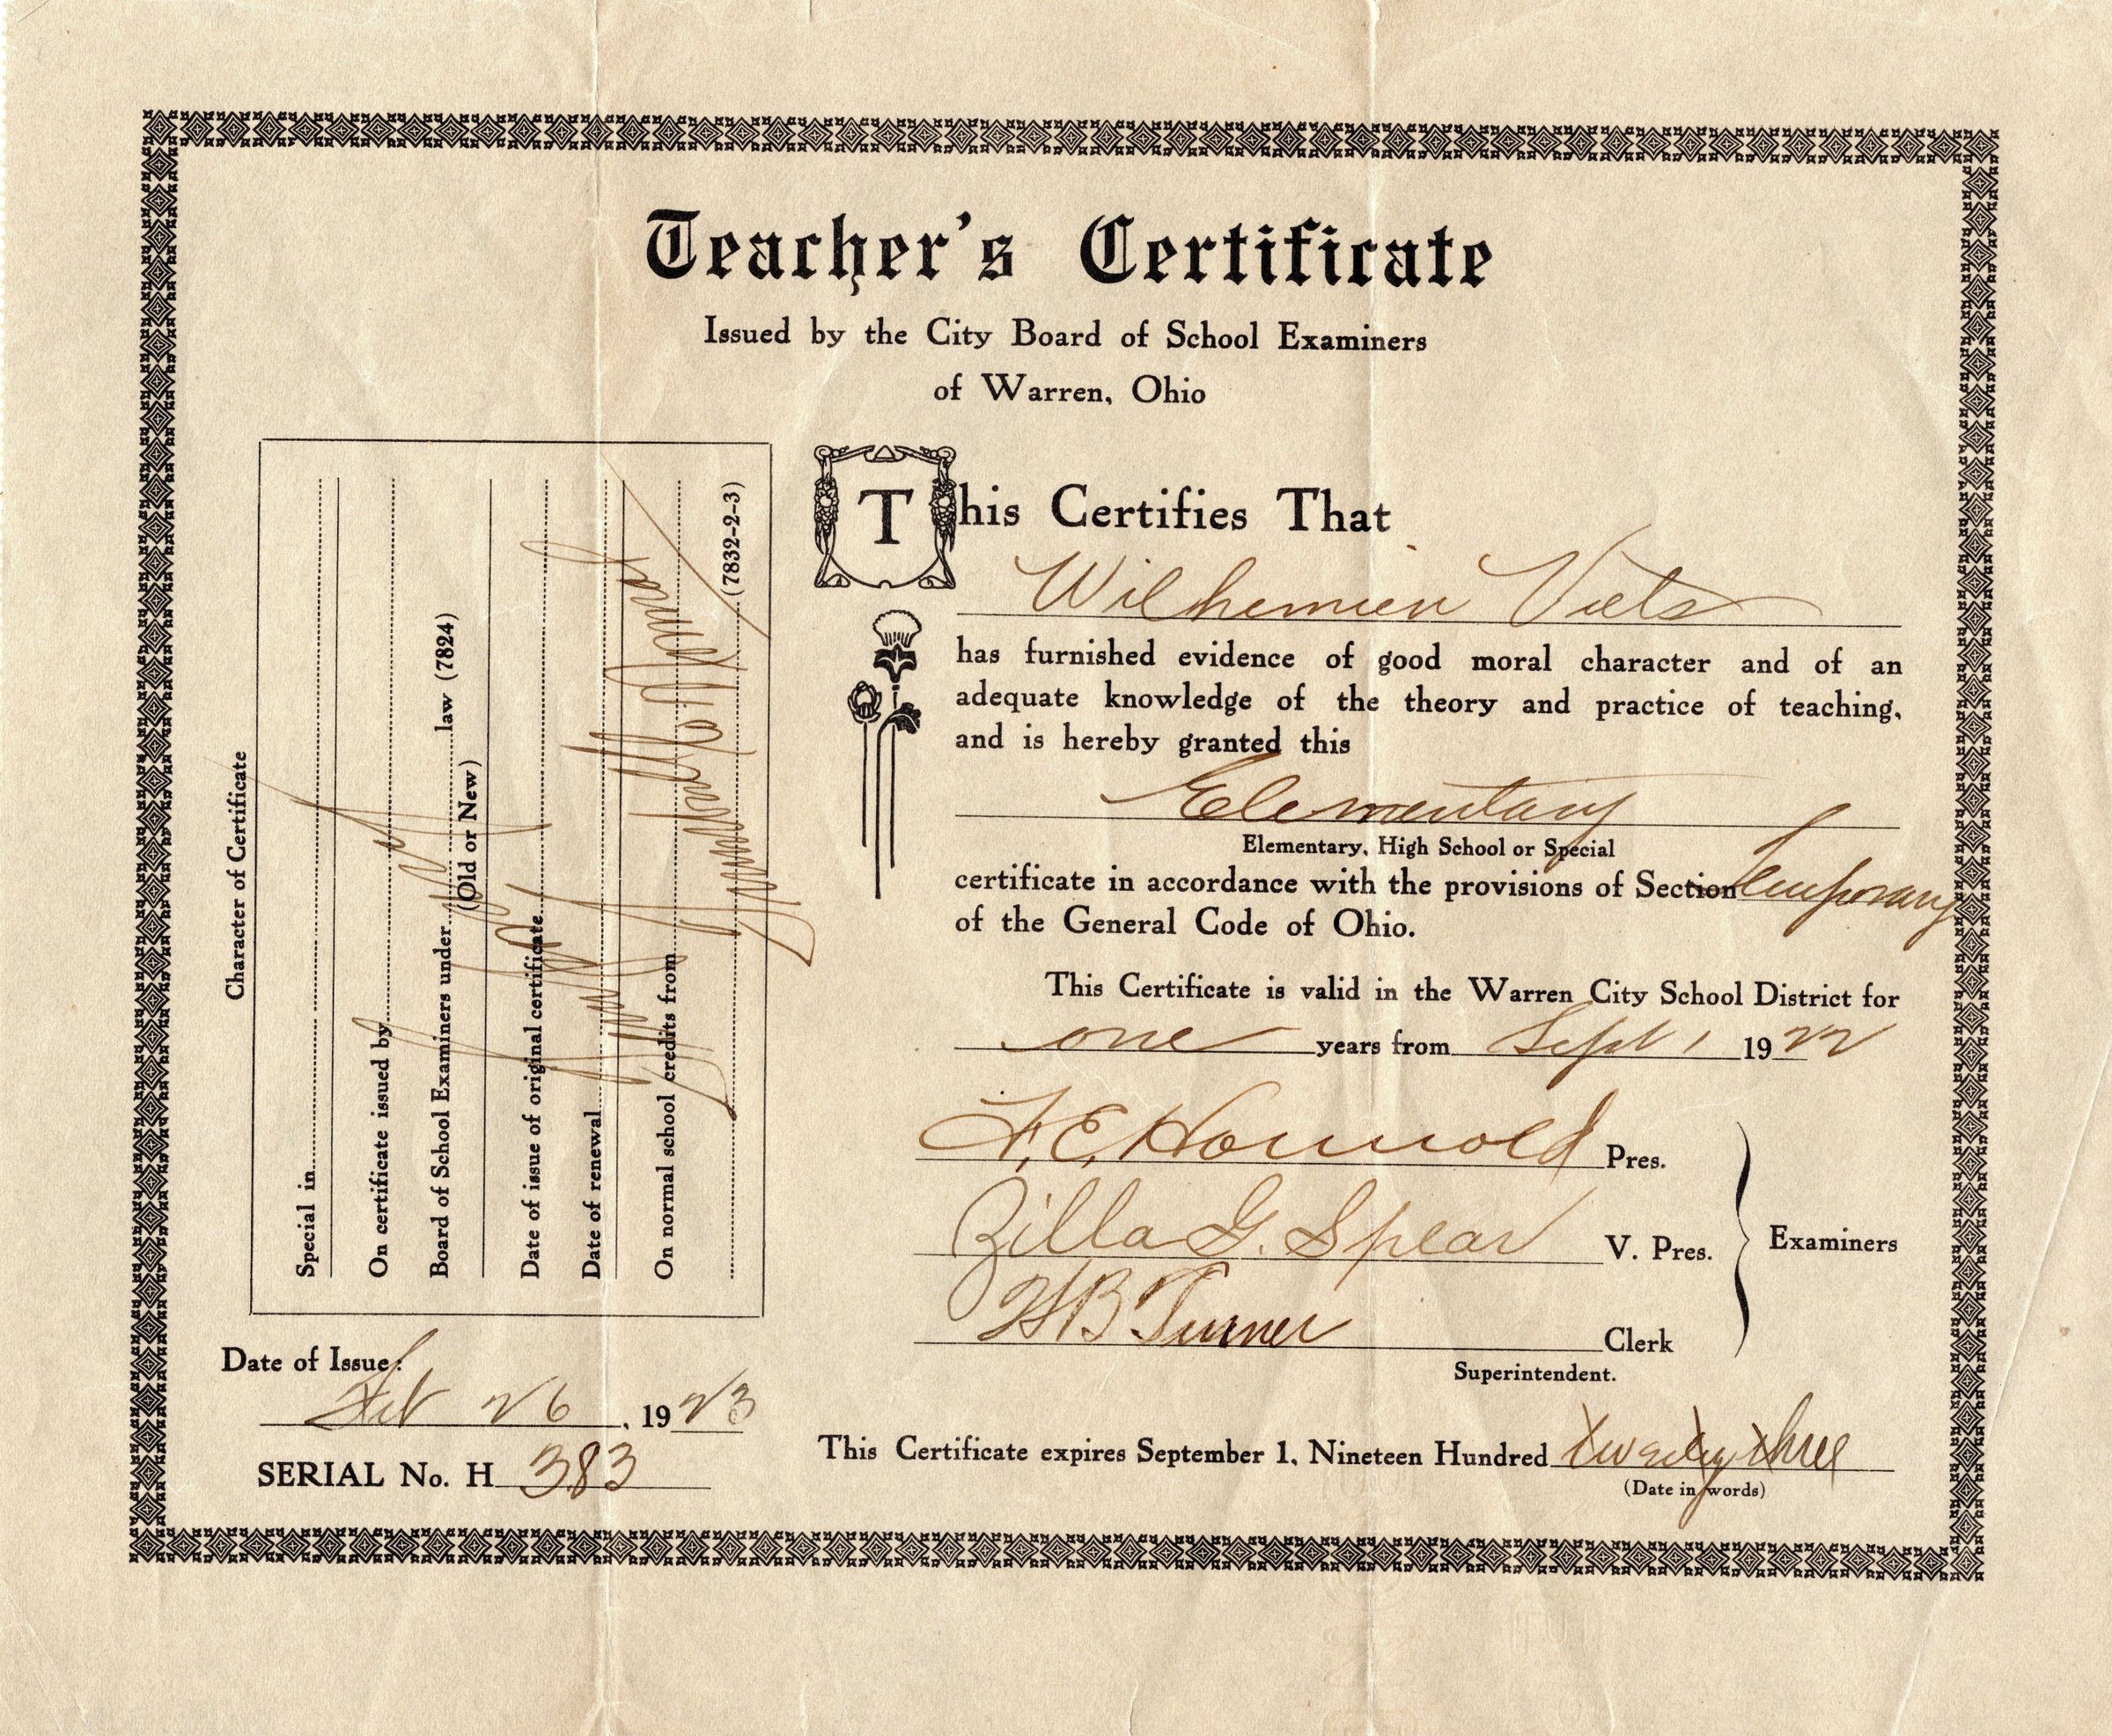 Teacher's Certificate
Issued by the City Board of School Examiners
of Warren, Ohio
Character of Certificate
Special in
On certificate issued by
Board of School Examiners under law (7824)
(Old or New)
Date of issue of original certificate
Date of renewal
On normal school credits from
(7832-2-3)
This Certifies That
Wilhemien Viets
has furnished evidence of good moral character and of an
adequate knowledge of the theory and practice of teaching,
and is hereby granted this
Elementary
Elementary, High School or Special
certificate in accordance with the provisions of Section Temporary
of the General Code of Ohio.
This Certificate is valid in the Warren City School District for
one years from Sept 1 1922
F. E. Pres.
Zilla G. Spear V. Pres.
Examiners
H B Turner Clerk
Superintendent.
Date of Issue:
Feb 26, 1923
SERIAL No. H 383
This Certificate expires September 1, Nineteen Hundred twenty three
(Date in words)